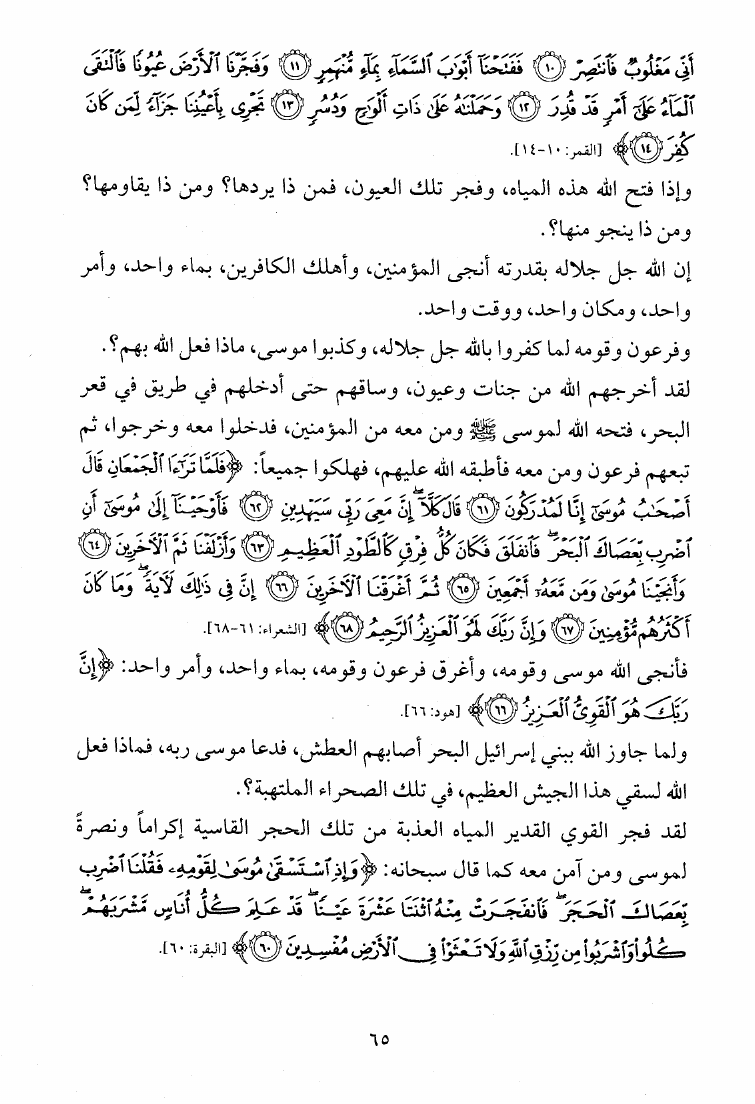 أَنِّي مَغْلُوبٌ فَانتَصِرْ ﴿١٠﴾ فَفَتَحْنَا أَبْوَابَ السَّمَاءِ بِمَاءٍ مُّنْهَمِرٍ ﴿١١﴾ وَفَجَّرْنَا الْأَرْضَ عُيُونًا فَالْتَقَى
الْمَاءُ عَلَىٰ أَمْرٍ قَدْ قُدِرَ ﴿١٢﴾ وَحَمَلْنَاهُ عَلَىٰ ذَاتِ أَلْوَاحٍ وَدُسُرٍ ﴿١٣﴾ تَجْرِي بِأَعْيُنِنَا جَزَاءً لِّمَن كَانَ
كُفِرَ ﴿١٤﴾﴾ [القمر: ١٠-١٤].
وإذا فتح الله هذه المياه، وفجر تلك العيون، فمن ذا يردها؟ ومن ذا يقاومها؟
ومن ذا ينجو منها؟.
إن الله جل جلاله بقدرته أنجى المؤمنين، وأهلك الكافرين، بماء واحد، وأمر
واحد، ومكان واحد، ووقت واحد.
وفرعون وقومه لما كفروا بالله جل جلاله، وكذبوا موسى، ماذا فعل الله بهم؟.
لقد أخرجهم الله من جنات وعيون، وساقهم حتى أدخلهم في طريق في قعر
البحر، فتحه الله لموسى ﷺ ومن معه من المؤمنين، فدخلوا معه وخرجوا، ثم
تبعهم فرعون ومن معه فأطبقه الله عليهم، فهلكوا جميعاً: ﴿فَلَمَّا تَرَاءَا الْجَمْعَانِ قَالَ
أَصْحَابُ مُوسَىٰ إِنَّا لَمُدْرَكُونَ ﴿٦١﴾ قَالَ كَلَّا ۖ إِنَّ مَعِيَ رَبِّي سَيَهْدِينِ ﴿٦٢﴾ فَأَوْحَيْنَا إِلَىٰ مُوسَىٰ أَنِ
اضْرِب بِّعَصَاكَ الْبَحْرَ ۖ فَانفَلَقَ فَكَانَ كُلُّ فِرْقٍ كَالطَّوْدِ الْعَظِيمِ ﴿٦٣﴾ وَأَزْلَفْنَا ثَمَّ الْآخَرِينَ ﴿٦٤﴾
وَأَنجَيْنَا مُوسَىٰ وَمَن مَّعَهُ أَجْمَعِينَ ﴿٦٥﴾ ثُمَّ أَغْرَقْنَا الْآخَرِينَ ﴿٦٦﴾ إِنَّ فِي ذَٰلِكَ لَآيَةً ۖ وَمَا كَانَ
أَكْثَرُهُم مُّؤْمِنِينَ ﴿٦٧﴾ وَإِنَّ رَبَّكَ لَهُوَ الْعَزِيزُ الرَّحِيمُ ﴿٦٨﴾﴾ [الشعراء: ٦١-٦٨].
فأنجى الله موسى وقومه، وأغرق فرعون وقومه، بماء واحد، وأمر واحد: ﴿إِنَّ
رَبَّكَ هُوَ الْقَوِيُّ الْعَزِيزُ ﴿٦٦﴾﴾ [هود: ٦٦].
ولما جاوز الله ببني إسرائيل البحر أصابهم العطش، فدعا موسى ربه، فماذا فعل
الله لسقي هذا الجيش العظيم، في تلك الصحراء الملتهبة؟.
لقد فجر القوي القدير المياه العذبة من تلك الحجر القاسية إكراماً ونصرةً
لموسى ومن آمن معه كما قال سبحانه: ﴿وَإِذِ اسْتَسْقَىٰ مُوسَىٰ لِقَوْمِهِ فَقُلْنَا اضْرِب
بِّعَصَاكَ الْحَجَرَ ۖ فَانفَجَرَتْ مِنْهُ اثْنَتَا عَشْرَةَ عَيْنًا ۖ قَدْ عَلِمَ كُلُّ أُنَاسٍ مَّشْرَبَهُمْ ۖ
كُلُوا وَاشْرَبُوا مِن رِّزْقِ اللَّهِ وَلَا تَعْثَوْا فِي الْأَرْضِ مُفْسِدِينَ ﴿٦٠﴾﴾ [البقرة: ٦٠].
٦٥